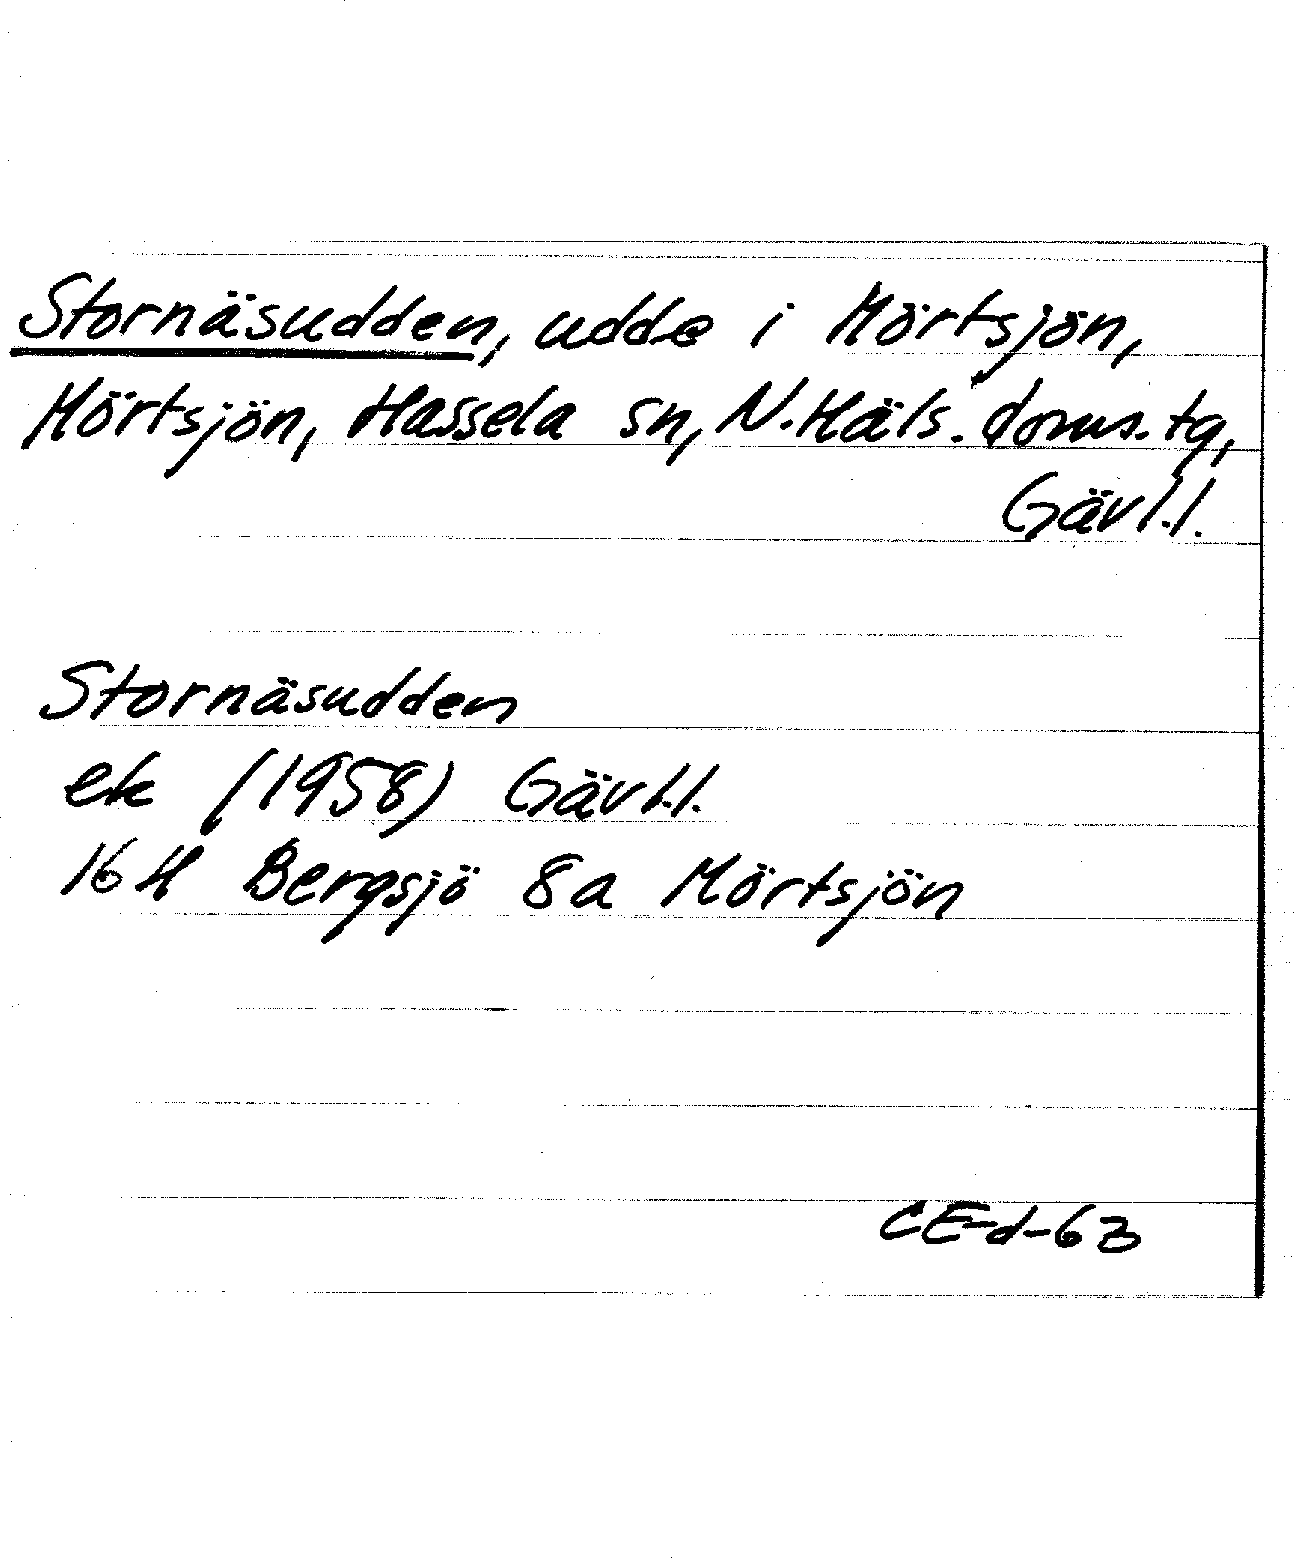 Stornäsudden, udde i Mörtsjön,
Mörtsjön, Hassela sn, N.Häls. doms. tg,
Gävl.l.
Stornäsudden
ek (1958) Gävl.l.
16 H Bergsjö 8a Mörtsjön
CE-d-63